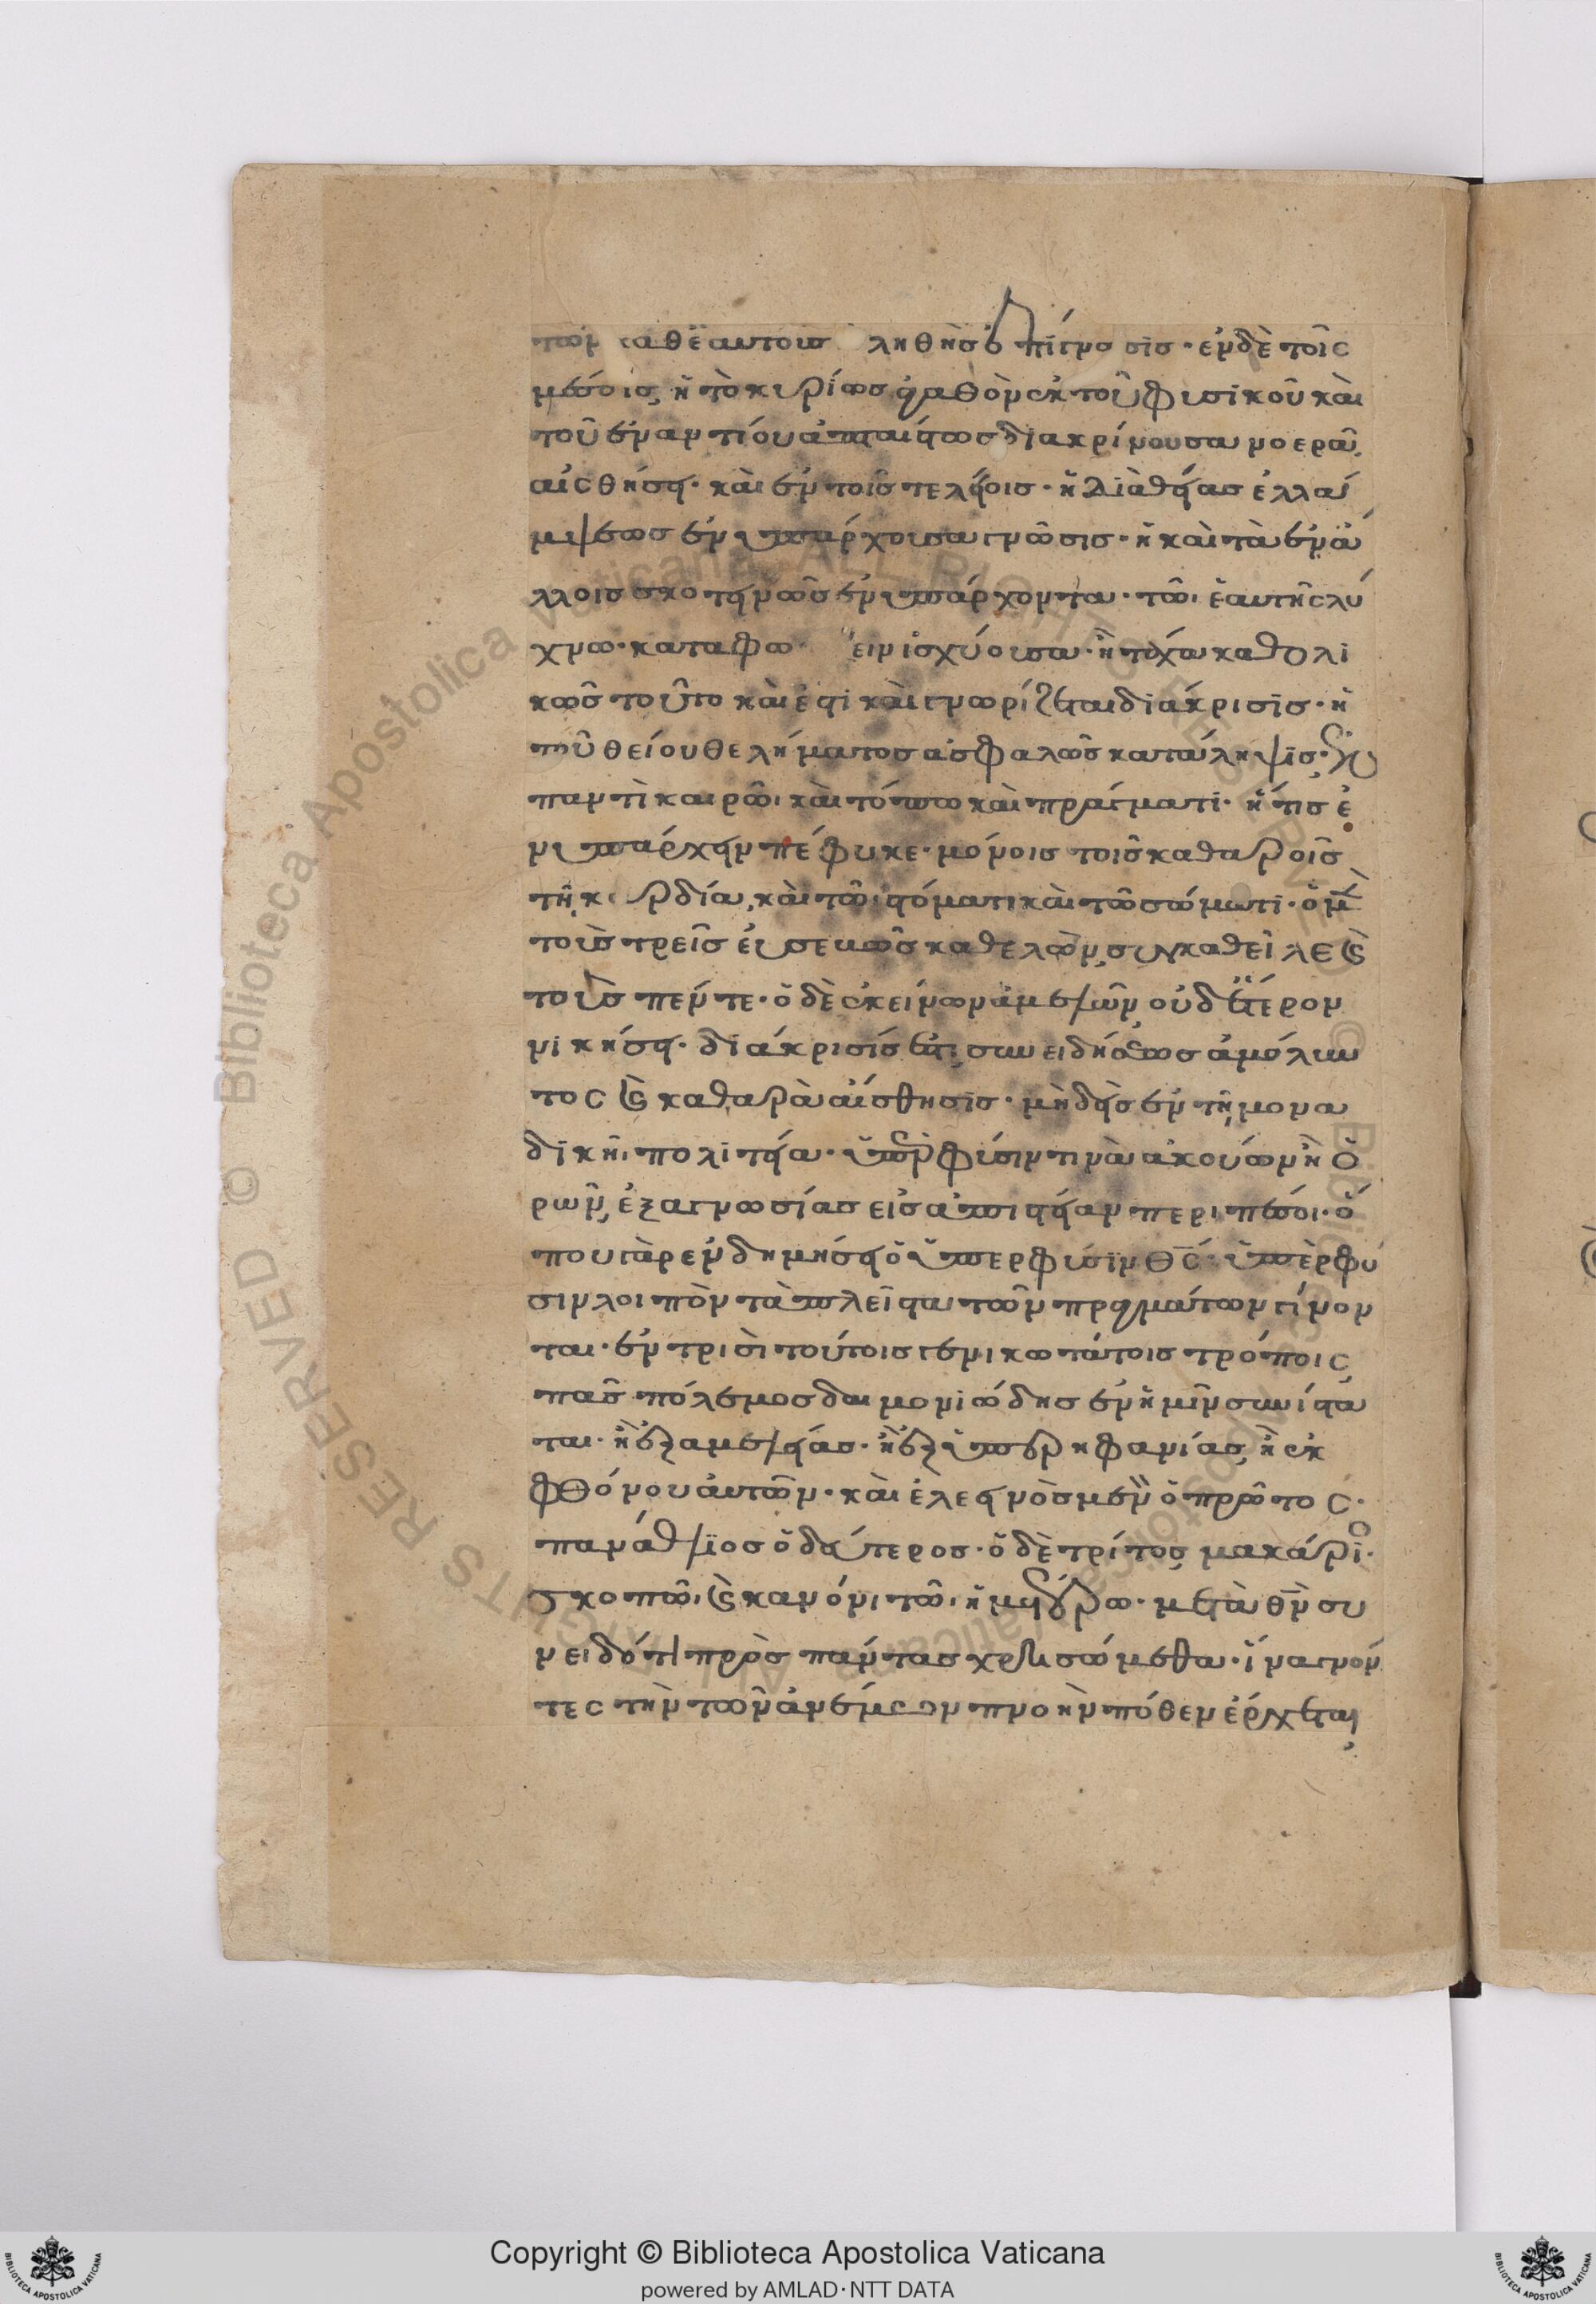 τῶν καθ' ἑαυτοὺς ἀληθὴς ἐπίγνωσις· ἐν δὲ τοῖς
μέσοις, ἡ τὸ κυρίως ἀγαθὸν ἐκ τοῦ φυσικοῦ καὶ
τοῦ ἐναντίου ἀπταίστως διακρίνουσα νοερὰ
αἴσθησις· καὶ ἐν τοῖς τελείοις· ἡ διὰ θείας ἐλλάμ
μψεως ἐνυπάρχουσα γνῶσις· ἡ καὶ τὰ ἐν ἄ
λλοις σκοτεινῶς ἐνυπάρχοντα· τῶ ἑαυτῆς λύ
χνω· καταφω ειν ἰσχύουσα· ἢ τάχα καθολι
κῶς τοῦτο καὶ ἐστὶ καὶ γνωρίζεται διάκρισις· ἡ
τοῦ θείου θελήματος ἀσφαλῶς κατάληψις· ἐν
παντὶ καιρῶ καὶ τόπω καὶ πράγματι· ἥτις ἐ
νυπάρχειν πέφυκε· μόνοις τοῖς καθαροῖς
τῆ καρδία, καὶ τῶ στόματι καὶ τῶ σώματι· ὁ μὲν
τοὺς τρεῖς εὐσεβῶς καθελὼν, συγκαθεῖλε καὶ
τοὺς πέντε· ὁ δὲ ἐκείνων ἀμελῶν, οὐδ' ἕτερον
νικήσει· διάκρισίς ἐστι, συνειδήσεως ἀμόλυν
τος καὶ καθαρὰ αἴσθησις· μὴδεὶς ἐν τῆ μονα
δικῆ πολιτεία· ὑπὲρ φύσιν τινὰ ἀκούων ἢ ὁ
ρῶν, ἐξ ἀγνωσίας εἰς ἀπιστείαν περιπέσοι· ὅ
που γὰρ ἐνδημήσει ὁ ὑπερφύσιν θς· ὑπὲρ φύ
σιν λοιπὸν τὰ πλεῖστα τῶν πραγμάτων γίνον
ται· ἐν τρισὶ τούτοις γενικωτάτοις τρόποις
πᾶς πόλεμος δαιμονιώδης ἐν ἡμῖν συνίστα
ται· ἢ ἐξ ἀμελείας· ἢ ἐξ ὑπερηφανίας, ἢ ἐκ
φθόνου αὐτῶν· καὶ ἐλεεινὸς μὲν ὁ πρῶτος·
πανάθλιος ὁ δεύτερος· ὁ δὲ τρίτος μακάρι·
σκοπῶ καὶ κανόνι τῶ ἡμετέρω· μετὰ θν συ
νειδότι πρὸς πάντας χρησώμεθα· ἵνα γνόν
τες τὴν τῶν ἀνέμων πνοὴν πόθεν ἔρχεται,